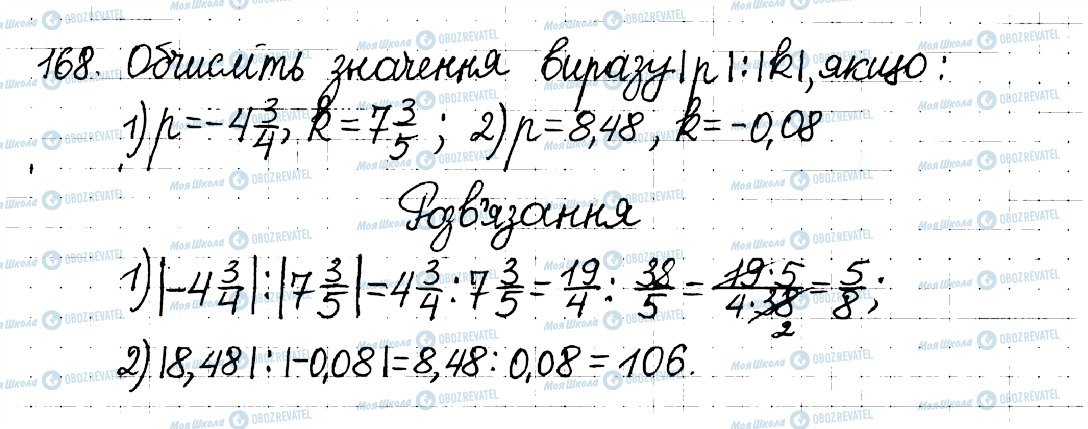 168. Обчисліть значення виразу |p|:|k|, якщо:
1) p = -4 3/4, k = 7 3/5; 2) p = 8,48, k = -0,08
Розв'язання
1) |-4 3/4| : |7 3/5| = 4 3/4 : 7 3/5 = 19/4 : 38/5 = 19·5/4·38 2 = 5/8;
2) |8,48| : |-0,08| = 8,48 : 0,08 = 106.